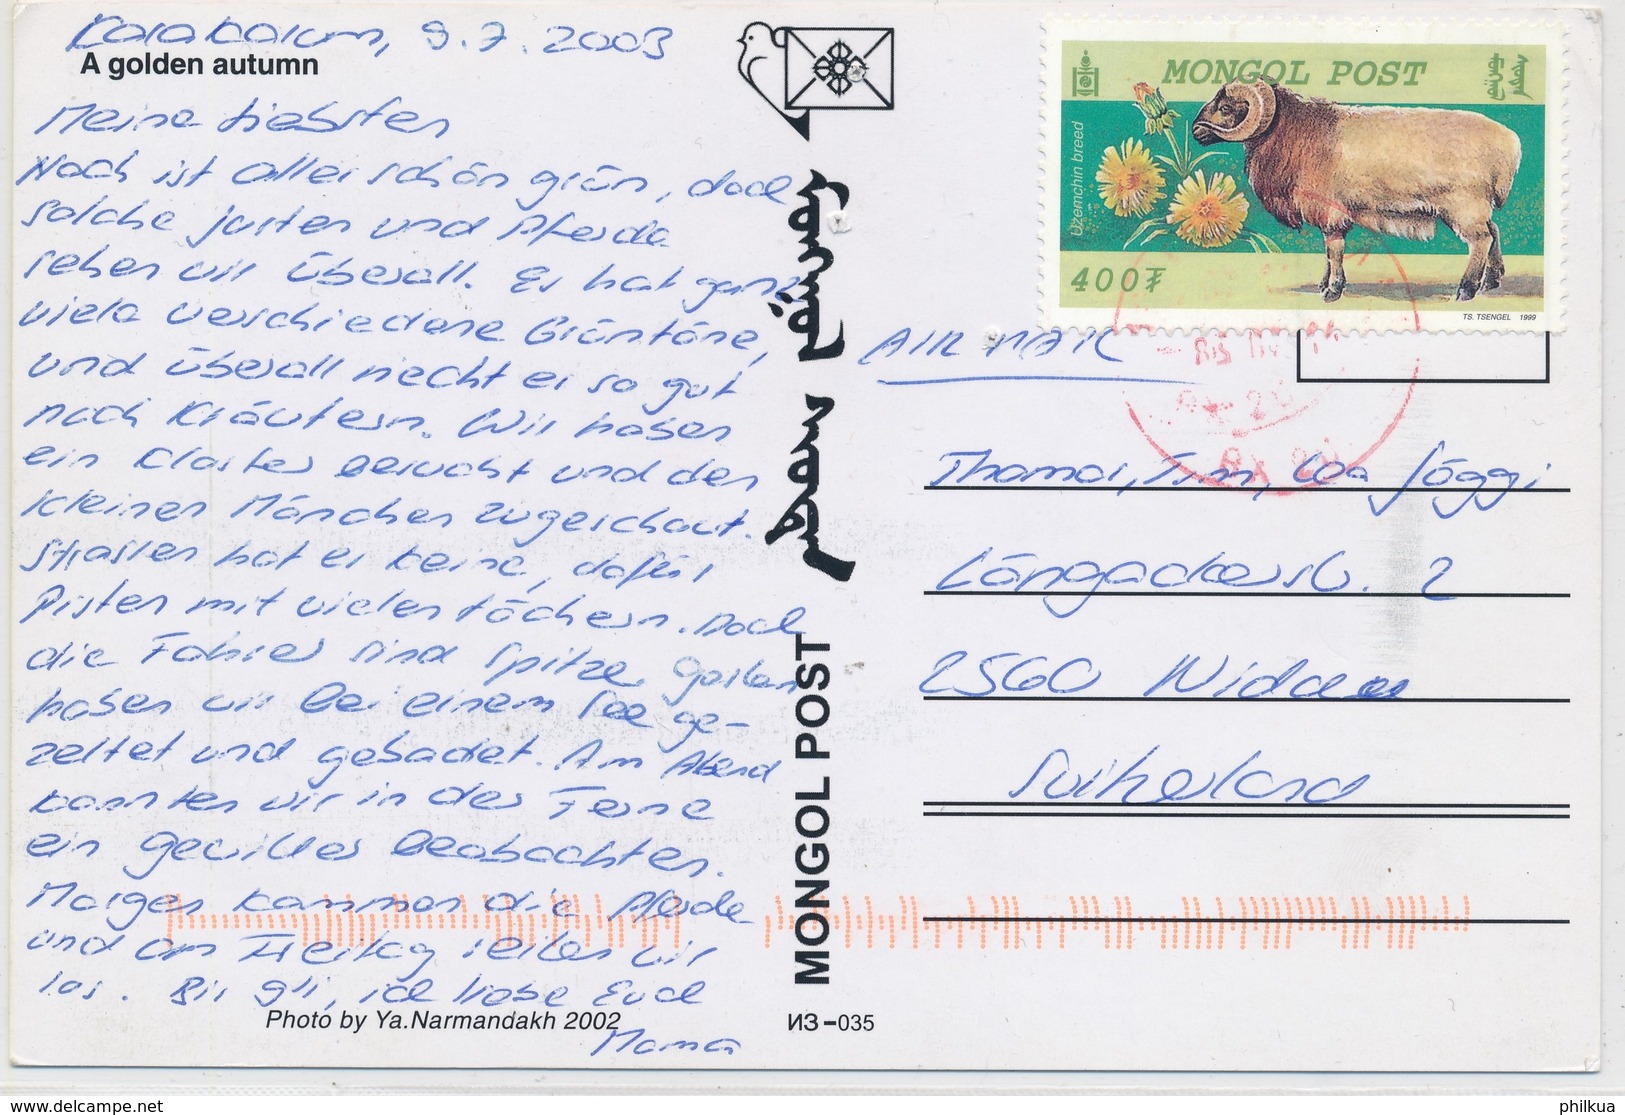 Karakorum, 9.7.2003
A golden autumn
Meine Liebsten
Noch ist alles schön grün, doch
solche Jurten und Pferde
sehen wir überall. Es hat ganz
viele verschiedene Grüntöne,
und überall riecht es so gut
nach Kräutern. Wir haben
ein Kloster besucht und den
kleinen Mönchen zugeschaut.
Strassen hat es keine, dafür
Pisten mit vielen Löchern. Doch
die Fahrer sind Spitze. Gestern
haben wir bei einem See ge-
zeltet und gebadet. Am Abend
konnten wir in der Ferne
ein Gewitter beobachten.
Morgen kommen die Pferde
und am Freitag reiten wir
los. Bis gli, ich liebe Euch
Mama
Photo by Ya.Narmandakh 2002
ИЗ-035
MONGOL POST
MONGOL POST
Uzemchin breed
400₮
TS. TSENGEL 1999
AIR MAIL
Thomas, Tim, Lea Jäggi
Längackerstr. 2
2560 Nidau
Switzerland
philkua